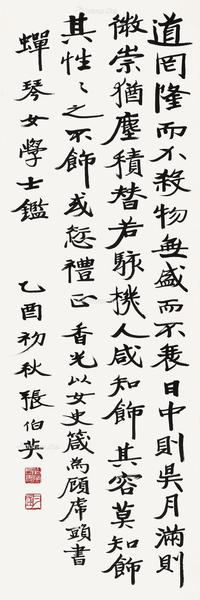 道罔隆而不殺物無盛而不衰日中則昃月滿則
微崇猶塵積替若駭機人咸知飾其容莫知飾
其性〻之不飾或愆禮正 香光以女史箴為顧虎頭書
蟬琴女學士鑑
乙酉初秋張伯英